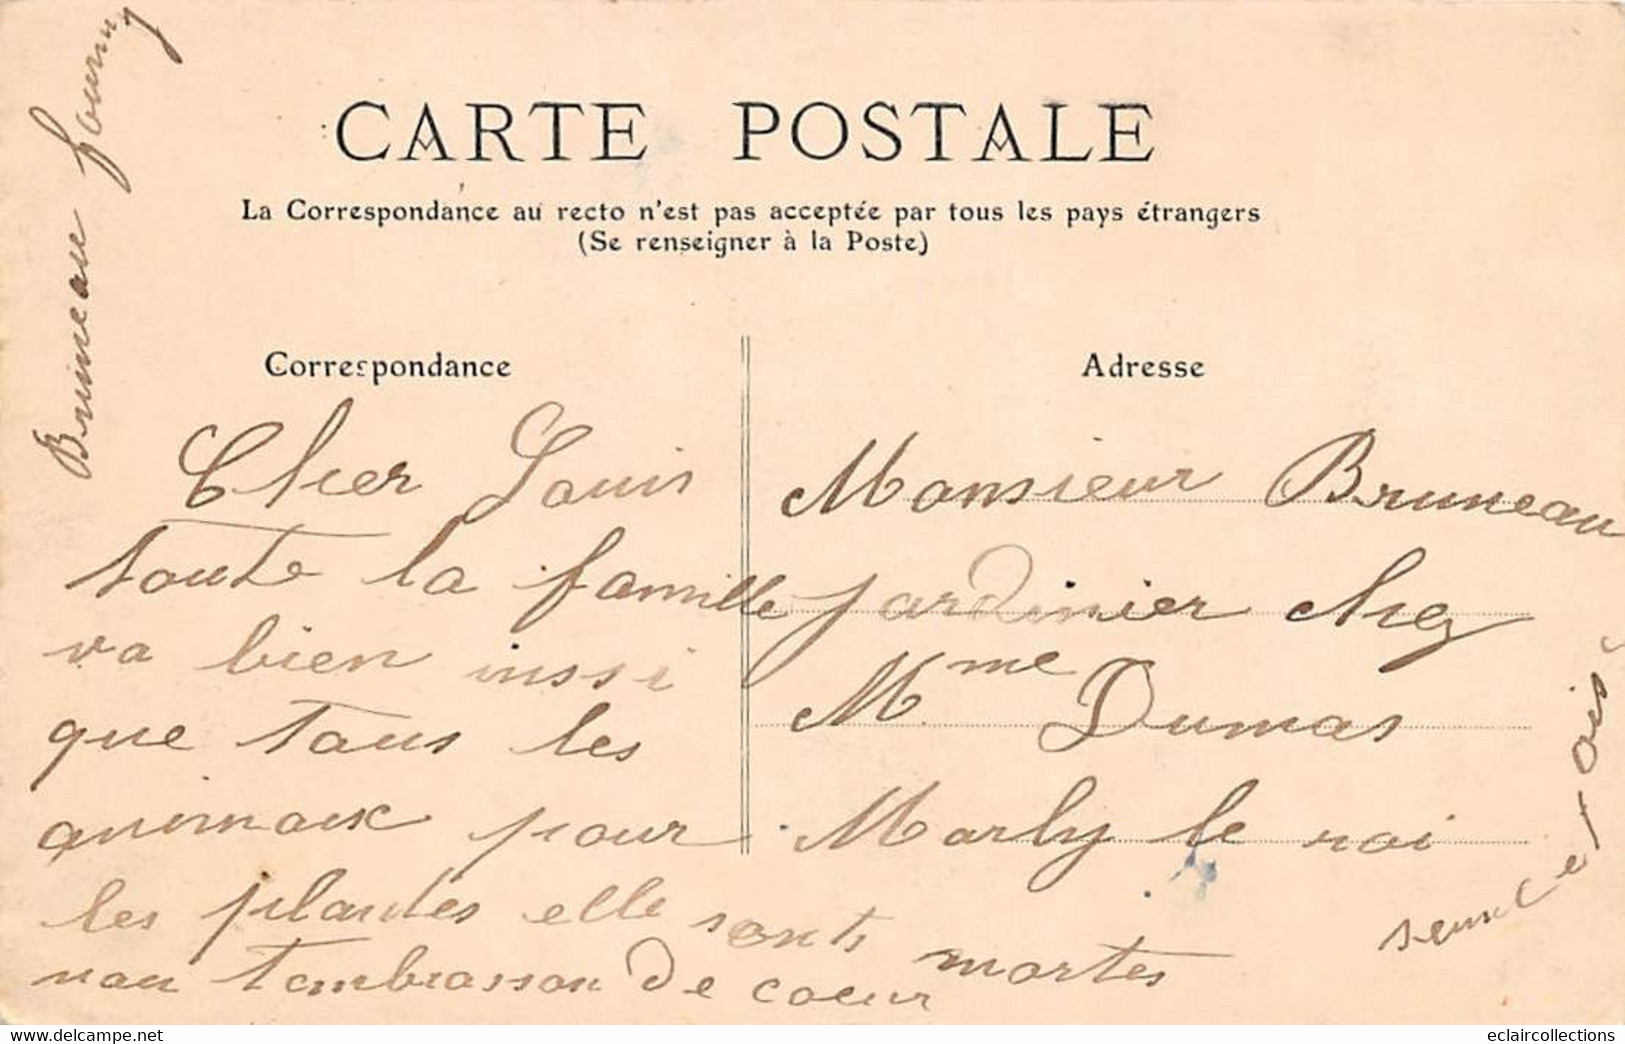 CARTE POSTALE
La Correspondance au recto n'est pas acceptée par tous les pays étrangers
(Se renseigner à la Poste)
Correspondance
Cher Louis
toute la famille
va bien inssi
que tous les
animaux pour
les plantes elle sonts mortes
nou tembrasson de coeur
Bruneau
Adresse
Monsieur Bruneau
jardinier chez
Mme Dumas
Marly le roi
seine et oise
www.delcampe.net
eclaircollections